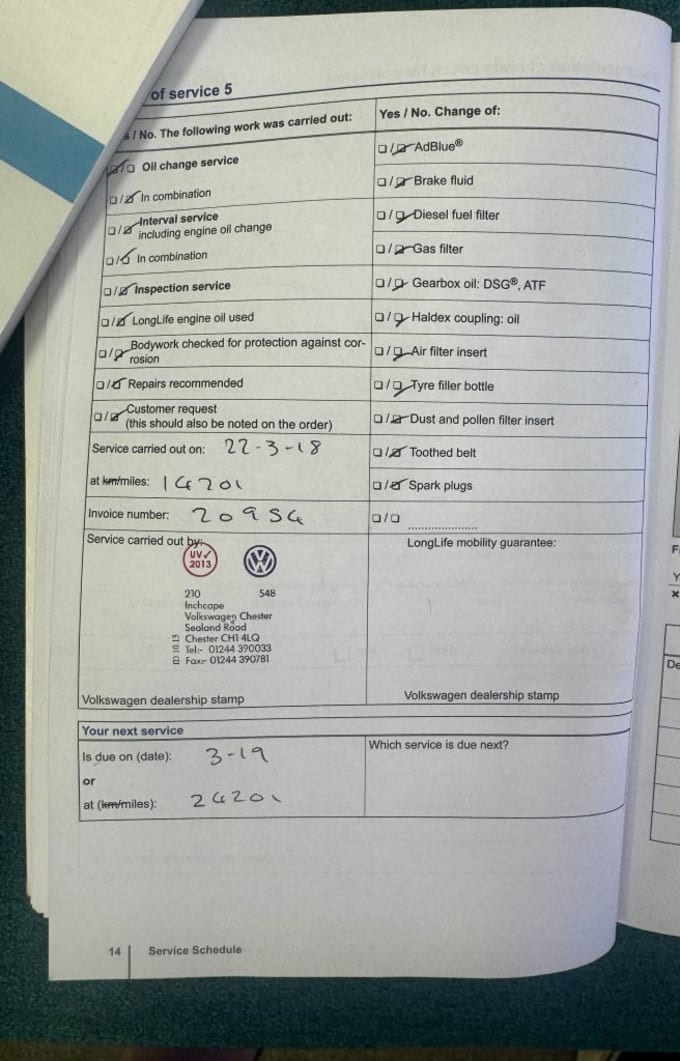 of service 5
s / No. The following work was carried out:
Oil change service
In combination
Interval service
including engine oil change
In combination
Inspection service
LongLife engine oil used
Bodywork checked for protection against cor-
rosion
Repairs recommended
Customer request
(this should also be noted on the order)
Service carried out on: 22-3-18
at km/miles: 14201
Invoice number: 20954
Service carried out by:
UV✓
2013
210 548
Inchcape
Volkswagen Chester
Sealand Road
Chester CH1 4LQ
Tel:- 01244 390033
Fax:- 01244 390781
Volkswagen dealership stamp
Yes / No. Change of:
AdBlue®
Brake fluid
Diesel fuel filter
Gas filter
Gearbox oil: DSG®, ATF
Haldex coupling: oil
Air filter insert
Tyre filler bottle
Dust and pollen filter insert
Toothed belt
Spark plugs
LongLife mobility guarantee:
Volkswagen dealership stamp
Your next service
Is due on (date): 3-19
or
at (km/miles): 24201
Which service is due next?
14 Service Schedule